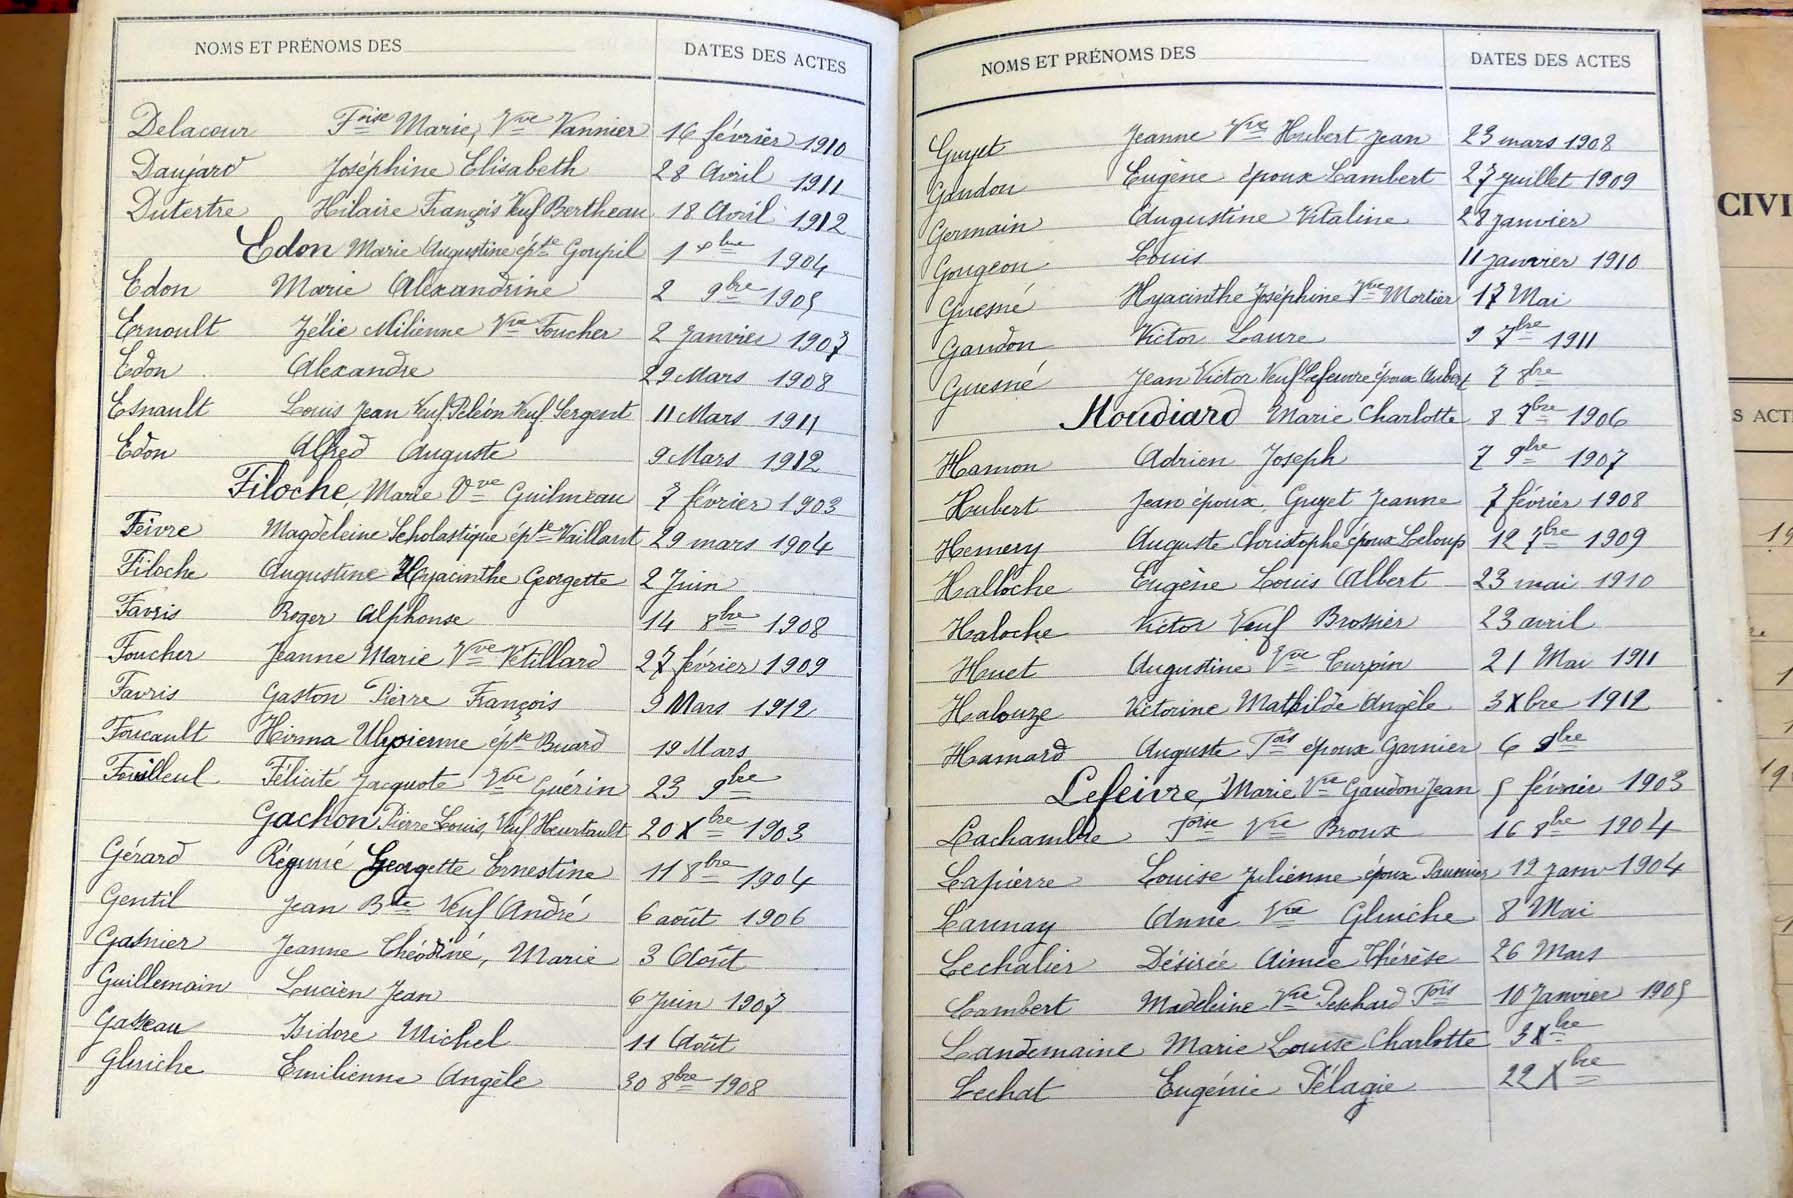 NOMS ET PRÉNOMS DES DATES DES ACTES
Delacour Foise Marie, Vve Vannier 16 février 1910
Daujard Joséphine Elisabeth 28 Avril 1911
Dutertre Hilaire François Veuf Bertheau 18 Avril 1912
Edon Marie Augustine épse Goupil 1 xbre 1904
Edon Marie Alexandrine 2 9bre 1905
Ernoult Zélie Milienne Vve Foucher 2 Janvier 1907
Edon Alexandre 29 Mars 1908
Esnault Louis Jean Veuf Péléon Veuf Sergent 11 Mars 1911
Edon Alfred Auguste 9 Mars 1912
Filoche, Marie Vve Guilmeau 7 février 1903
Feivre Magdeleine Scholastique épse Vaillant 29 mars 1904
Filoche Augustine Hyacinthe Georgette 2 Juin
Favris Roger Alphonse 14 8bre 1908
Foucher Jeanne Marie Vve Vétillard 27 février 1909
Favris Gaston Pierre François 9 Mars 1912
Foucault Hirma épse Buard 19 Mars
Feuilleul Félicité Jacquote Vve Guérin 23 9bre
Gachon, Pierre Louis, Veuf Heurtault 20 Xbre 1903
Gérard Georgette Ernestine 11 8bre 1904
Gentil Jean Bte Veuf André 6 août 1906
Gasnier Jeanne Marie 3 Août
Guillemain Lucien Jean 6 Juin 1907
Gasseau Isidore Michel 11 Août
Gluiche Emilienne Angèle 30 8bre 1908
NOMS ET PRÉNOMS DES DATES DES ACTES
Guyet Jeanne Vve Hubert Jean 23 mars 1908
Gandon Eugène époux Lambert 27 juillet 1909
Germain Augustine Vitaline 28 janvier
Gougeon Louis 11 janvier 1910
Guesné Hyacinthe Joséphine Vve Mortier 17 Mai
Gaudon Victor Laure 9 7bre 1911
Guesné Jean Victor Veuf Lefeuvre époux Aubert 7 8bre
Houdiard Marie Charlotte 8 7bre 1906
Hamon Adrien Joseph 7 9bre 1907
Hubert Jean époux Guyet Jeanne 7 février 1908
Hemery Auguste Christophe époux Leloup 12 7bre 1909
Halloche Eugène Louis Albert 23 mai 1910
Haloche Victor Veuf Brossier 23 avril
Huet Augustine Vve Turpin 21 Mai 1911
Halouze Victorine Mathilde Angèle 3 Xbre 1912
Hamard Auguste Fois époux Garnier 6 9bre
Lefeivre, Marie Vve Gaudon Jean 5 février 1903
Lachambre Foise Vve Broux 16 8bre 1904
Lapierre Louise Julienne époux 12 janv 1904
Launay Anne Vve Gluiche 8 Mai
Lechalier Désirée Aimée Thérèse 26 Mars
Lambert Madeleine Vve Peschard Fois 10 Janvier 1905
Landemaine Marie Louise Charlotte 3 Xbre
Lechat Eugénie Pélagie 22 Xbre
CIVI
S ACT